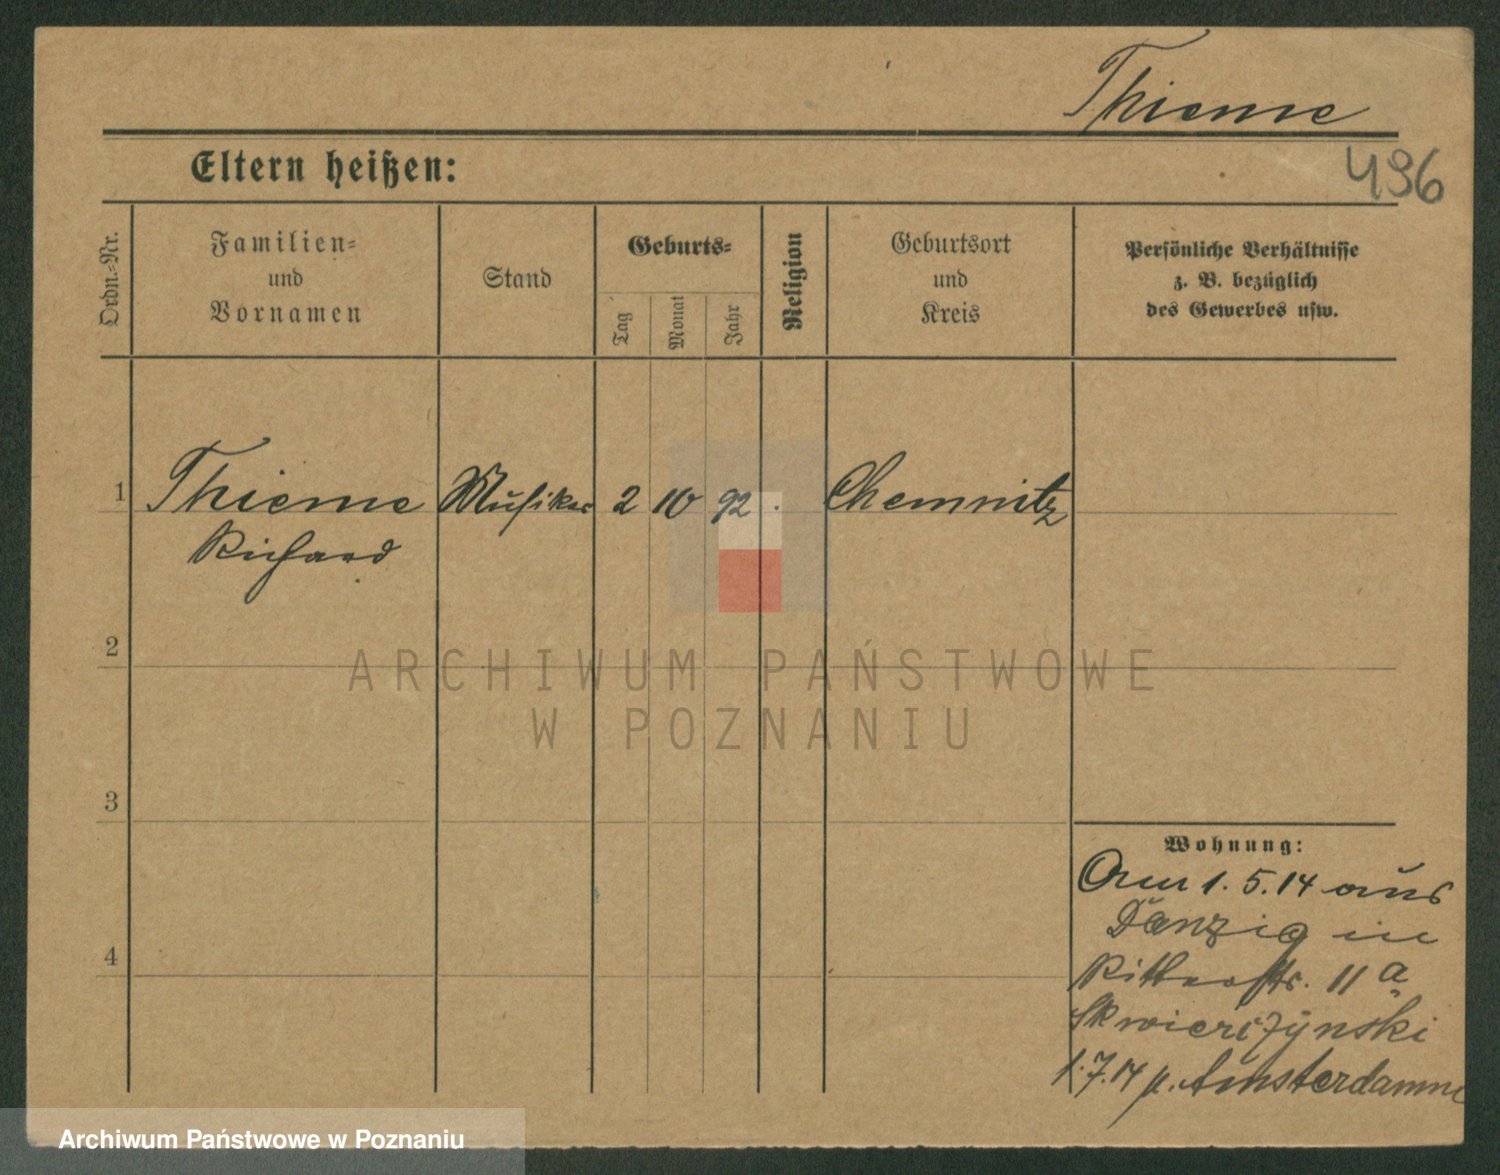 Thieme
Eltern heißen:
496
Ordn.-Nr.
Familien-
und
Vornamen
Stand
Geburts-
Tag
Monat
Jahr
Religion
Geburtsort
und
Kreis
Persönliche Verhältnisse
z. B. bezüglich
des Gewerbes usw.
1 Thieme Musiker 2 10 92 . Chemnitz
Richard
2
3
4
ARCHIWUM PAŃSTWOWE
W POZNANIU
Wohnung:
Am 1.5.14 aus
Danzig in
Ritterstr. 11 a
Skwierczynski
1.7.14 n. Amsterdamm
Archiwum Państwowe w Poznaniu